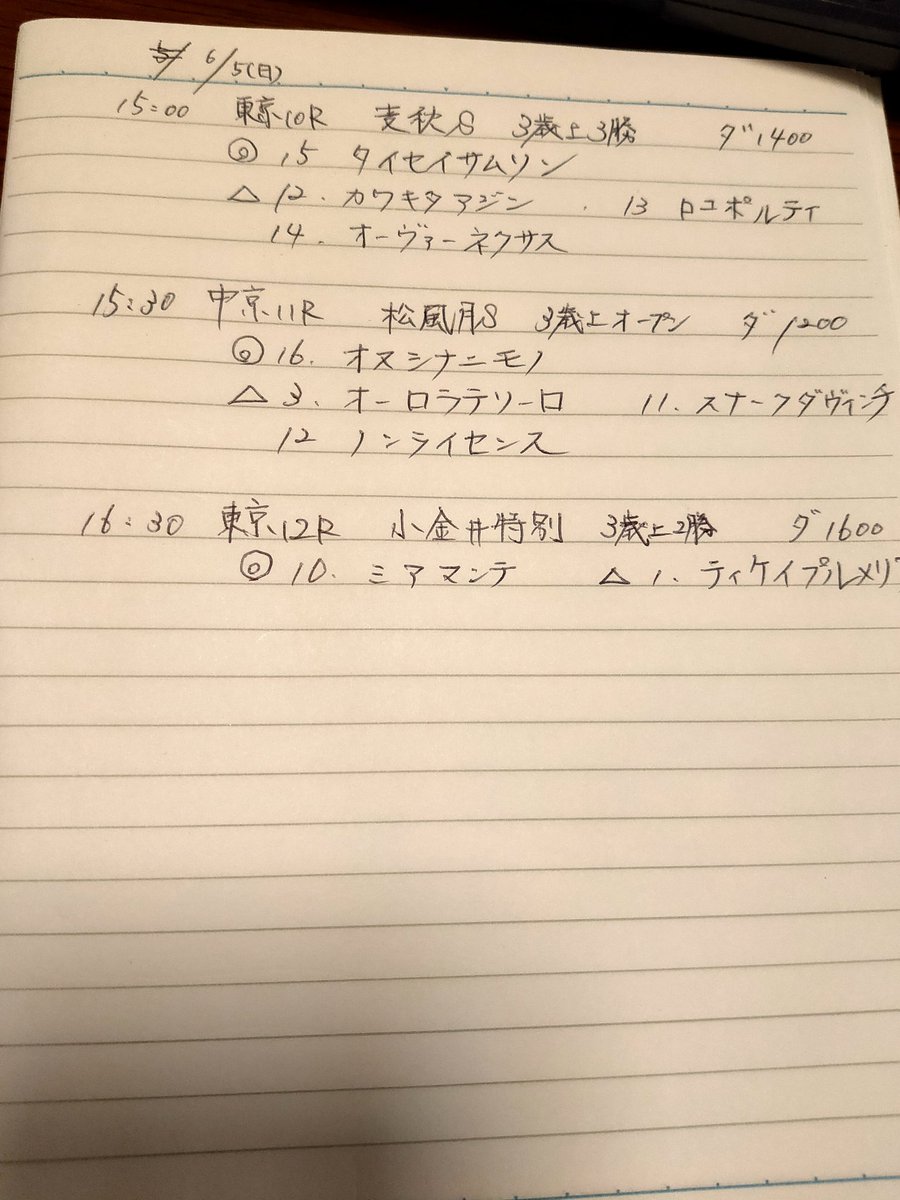 6/5(日)
15:00 東京10R 麦秋S 3歳上3勝 ダ1400
◎ 15 タイセイサムソン
△ 12. カワキタアジン . 13 ロユポルティ
14. オーヴァーネクサス
15:30 中京11R 松風月S 3歳上オープン ダ1200
◎ 16. オヌシナニモノ
△ 3. オーロラテソーロ 11. スナークダヴィンチ
12 ノンライセンス
16:30 東京12R 小金井特別 3歳上2勝 ダ1600
◎ 10. ミアマンテ △ 1. ティケイプルメリ